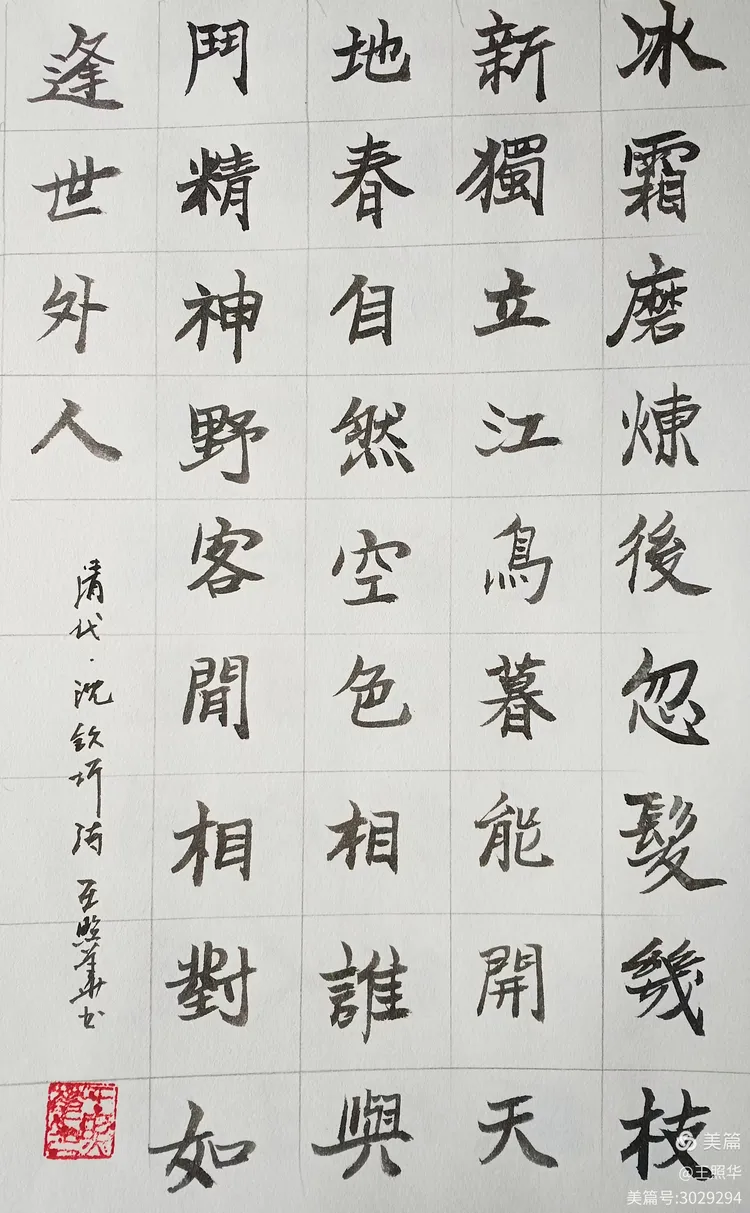 冰霜磨煉後忽髮幾枝
新獨立江鳥暮能開天
地春自然空色相誰與
鬥精神野客閒相對如
逢世外人
清代·沈钦圻诗 王照華书
美篇
@王照华
美篇号:3029294